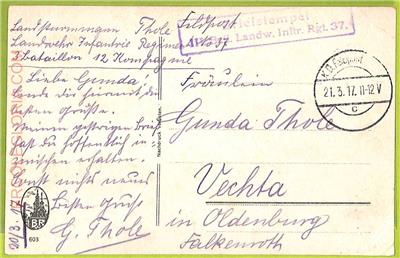 Landsturmmann Thole
Landwehr Infantrie Regiment No 37
3 Bataillon 12 Kompagnie
Feldpost
Briefstempel
Landw. Inftr. Rgt. 37.
K.D. Feldpost
21.3.17. 11-12 V
c
Liebe Gunda!
Sende dir hiermit die
besten Grüße.
Meinen gestrigen Brief
hast du hoffentlich in-
zwischen erhalten.
Sonst nichts neues
Besten Gruß
G. Thole
20/3.17
603
Gunda Thole
Vechta
in Oldenburg
Falkenroth